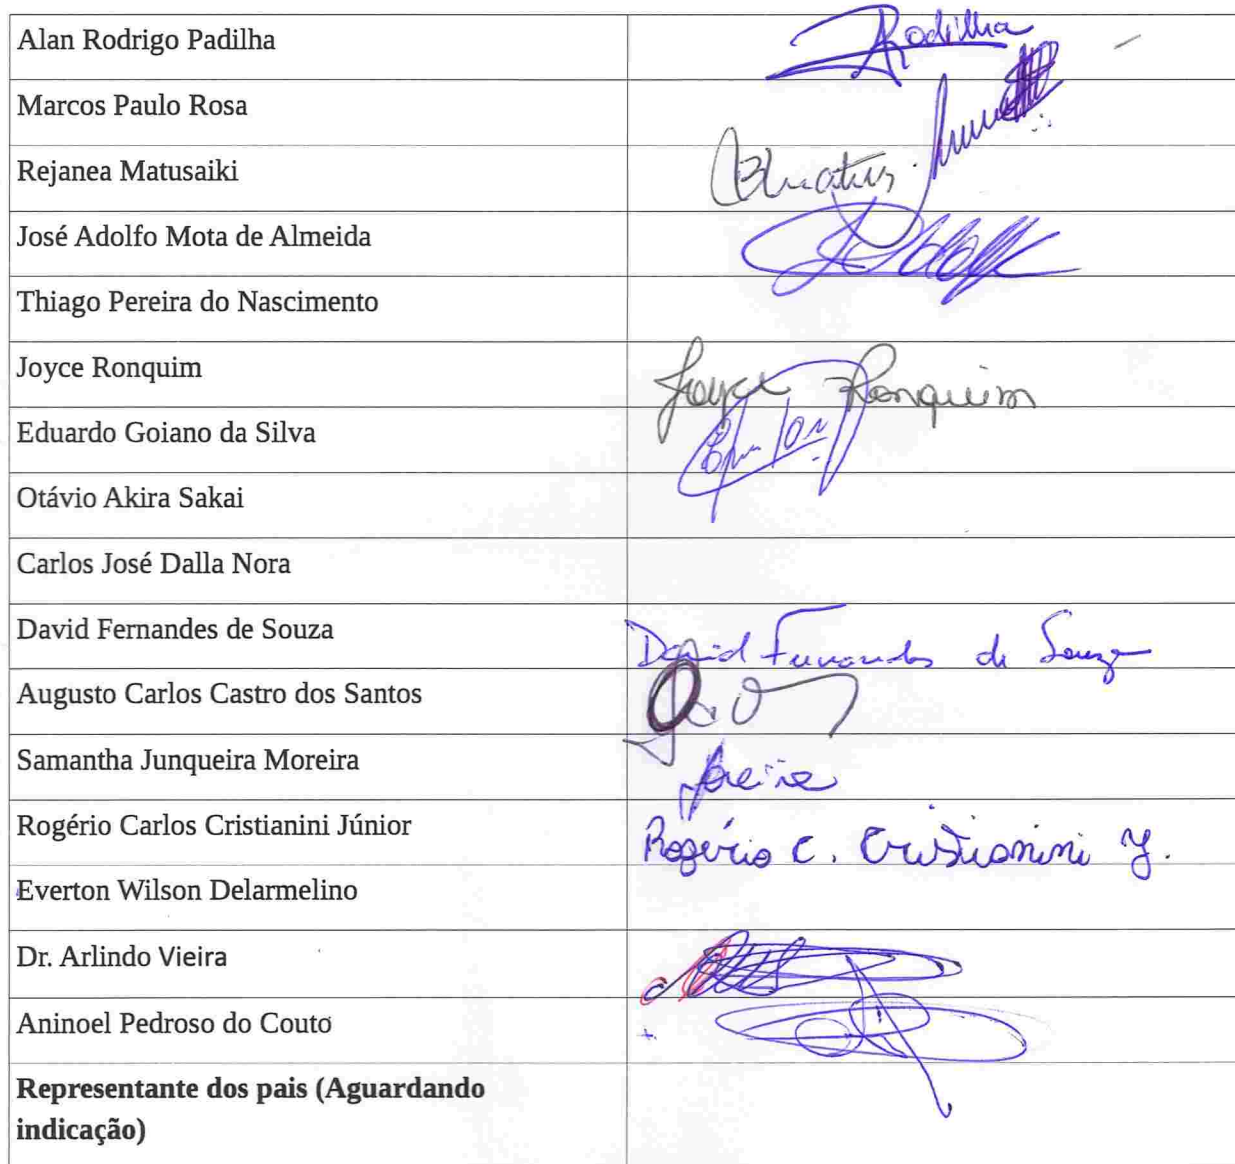 Alan Rodrigo Padilha
Marcos Paulo Rosa
Rejanea Matusaiki
José Adolfo Mota de Almeida
Thiago Pereira do Nascimento
Joyce Ronquim Joyce Ronquim
Eduardo Goiano da Silva
Otávio Akira Sakai
Carlos José Dalla Nora
David Fernandes de Souza David Fernandes de Souza
Augusto Carlos Castro dos Santos
Samantha Junqueira Moreira
Rogério Carlos Cristianini Júnior Rogério C. Cristianini J.
Everton Wilson Delarmelino
Dr. Arlindo Vieira
Aninoel Pedroso do Couto
Representante dos pais (Aguardando
indicação)